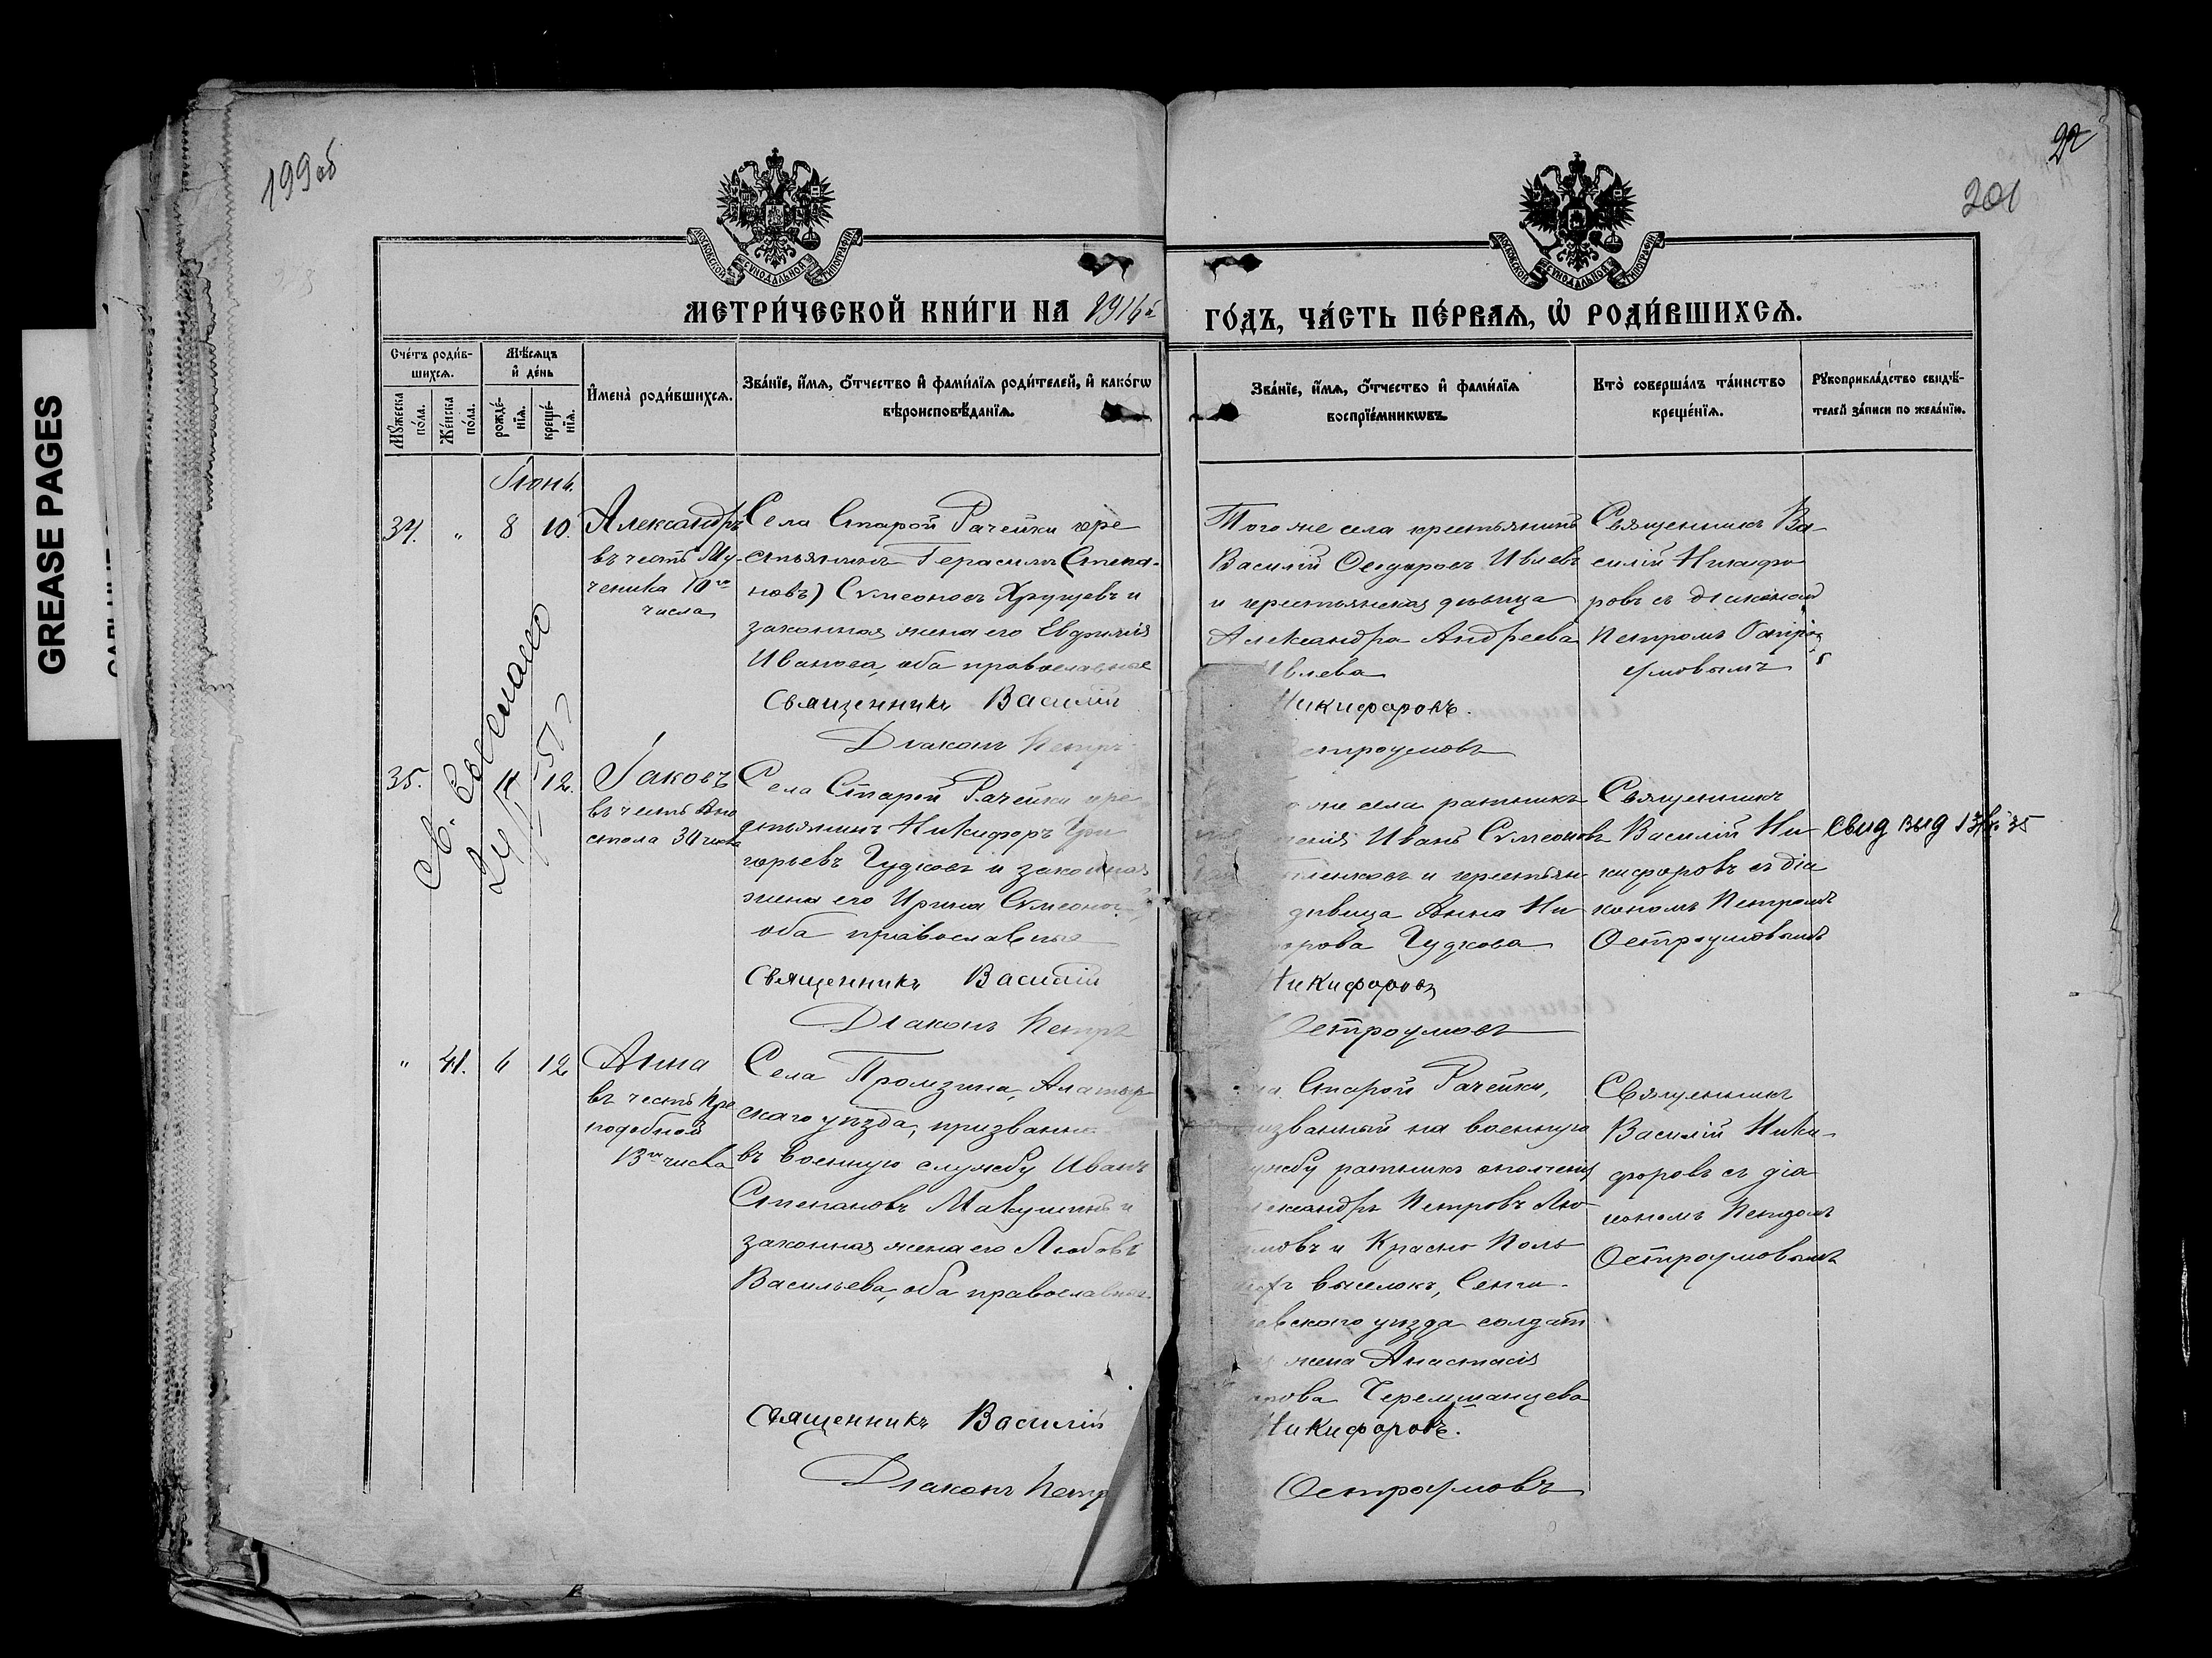 GREASE PAGES
199 об
22
201
МОСКОВСКОЙ СУНОДАЛЬНОЙ ТИПОГРАФІИ
МОСКОВСКОЙ СУНОДАЛЬНОЙ ТИПОГРАФІИ
МЕТРИ́ЧЕСКОЙ КНИ́ГИ НА 1916 й
ГО́ДЪ, ЧА́СТЬ ПЕ́РВАѦ, Ѡ҆ РОДИ́ВШИХСѦ.
Сче́тъ роди́в-
шихсѧ.
Мꙋ́жеска по́ла.
Же́нска по́ла.
Мѣ́сѧцъ и҆ де́нь
рожде́-
нїѧ.
креще́-
нїѧ.
И҆мена̀ роди́вшихсѧ.
Зва́нїе, и҆́мѧ, ѻ҆́тчество и҆ фами́лїѧ роди́телей, и҆ како́гѡ
вѣроисповѣ́данїѧ.
Зва́нїе, и҆́мѧ, ѻ҆́тчество и҆ фами́лїѧ
воспрїе́мникѡвъ.
Кто̀ соверша́лъ та́инство
креще́нїѧ.
Рꙋкоприкла́дство свидѣ́-
телей за́писи по жела́нїю.
Іюнь.
34. " 8 10.
Александръ
въ честь Му-
ченика 10го
числа
Села Старой Рачейки кре
стьянинъ Герасимъ Степа-
новъ) Сѵмеоновъ Хрущевъ и
законная жена его Евфимія
Иванова, оба православные
Священникъ Василій
Діаконъ Петръ
Того же села крестьянинъ
Василій Ѳедоровъ Ивлевъ
и крестьянская дѣвица
Александра Андреева
Ивлева
Никифоровъ.
Остроумовъ
Священникъ Ва-
силій Никифо
ровъ съ діакономъ
Петромъ Остро
умовымъ
35. 11 12.
Іаковъ
въ честь Апо
стола 30 числа
Села Старой Рачейки кре
стьянинъ Никифоръ Гри
горьевъ Гудковъ и законная
жена его Ирина Сѵмеонова,
оба православные
Священникъ Василій
Діаконъ Петръ
же села ратникъ
Иванъ Сѵмеоновъ
и крестьян-
дѣвица Анна Ни-
форова Гудкова
Никифоровъ
Остроумовъ
Священникъ
Василій Ни
кифоровъ съ діа
кономъ Петромъ
Остроумовымъ
Свид выд
35
" 41. 6 12
Анна
въ честь Пре
подобной
13го числа
Села Промзина, Алатыр
скаго уѣзда, призванный
въ военную службу Иванъ
Степановъ Макушинъ и
законная жена его Любовь
Васильева, оба православные.
Священникъ Василій
Діаконъ Петр
Старой Рачейки,
призванный на военную
службу ратникъ ополченія
Александръ Петровъ
и Красно Поль
выселокъ, Сенги-
леевскаго уѣзда солдат
жена Анастасія
Черемшанцева
Никифоровъ.
Остроумовъ
Священникъ
Василій Ники-
форовъ съ діа
кономъ Петромъ
Остроумовымъ